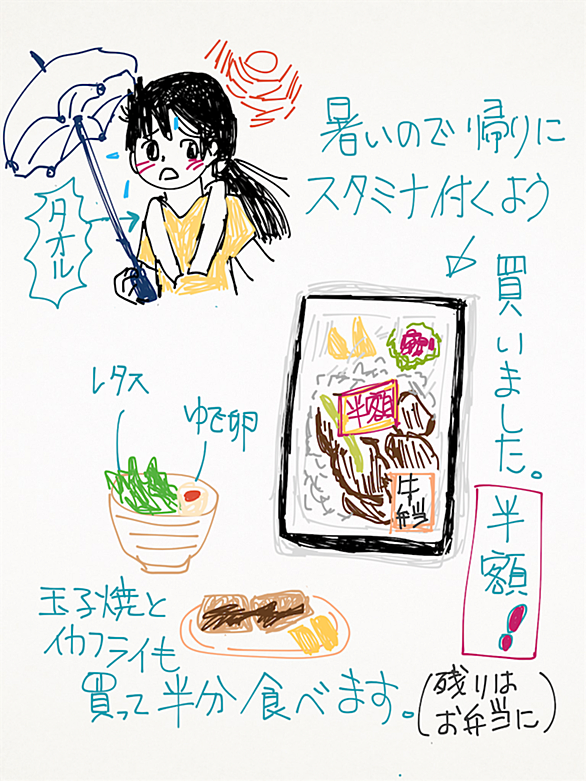 暑いので帰りに
スタミナ付くよう
買いました。
タオル
半額
牛
弁当
半額!
レタス
ゆで卵
玉子焼と
イカフライも
買って半分食べます。
(残りは
お弁当に)